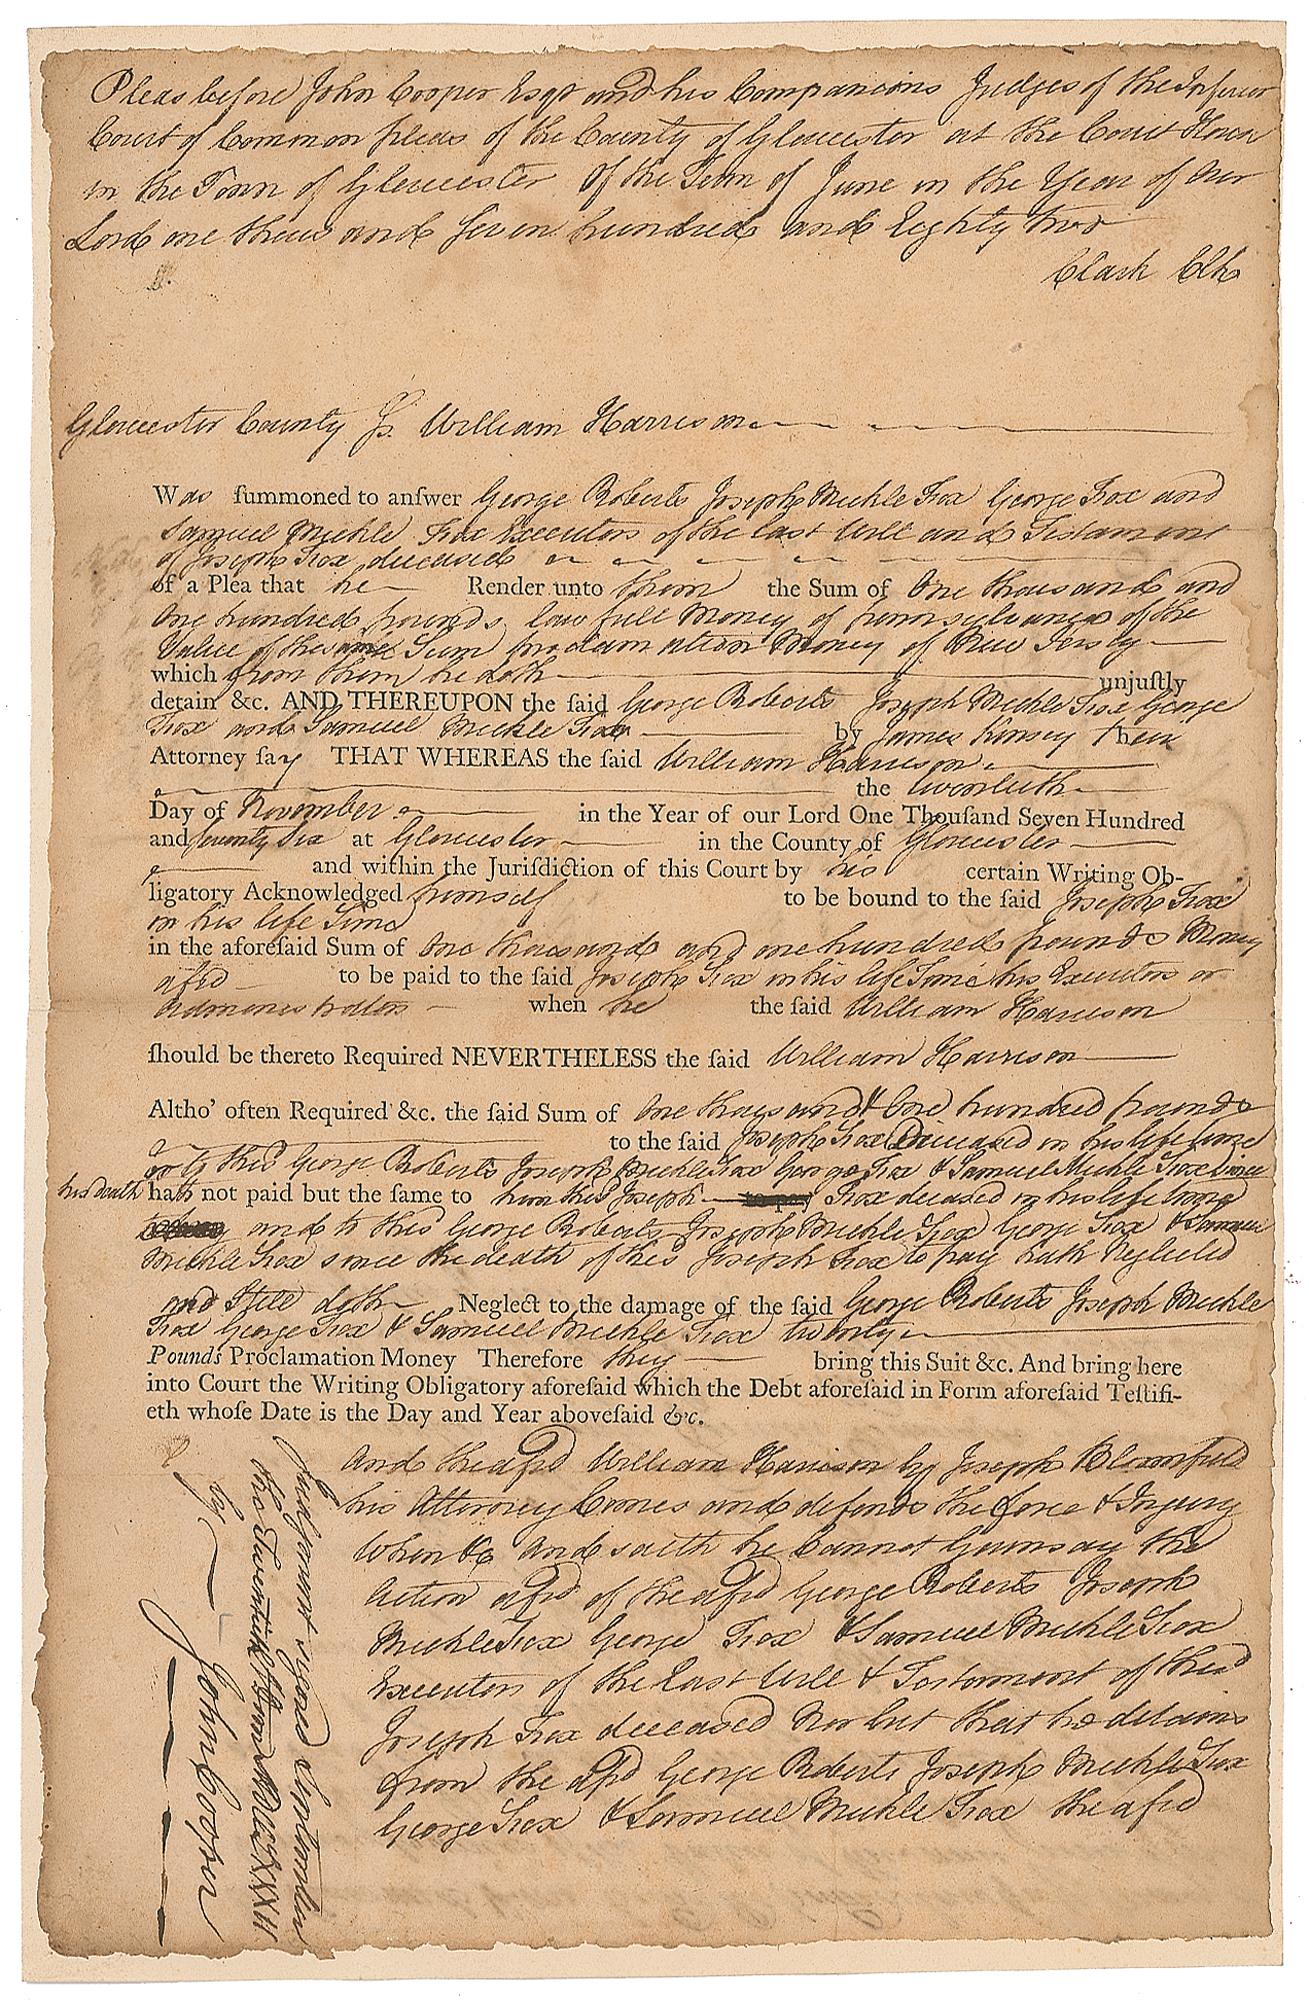 Pleas before John Cooper Esqr and his Companions Judges of the Inferior
Court of Common pleas of the County of Gloucester at the Court House
in the Town of Gloucester Of the Term of June in the Year of Our
Lord one thous and Seven hundred and Eighty two
Clark Clk
Gloucester County Ss. William Harrison
Was ſummoned to anſwer George Roberts Joseph Mickle Fox George Fox and
Samuel Mickle Fox Executors of the last Will and Testament
of Joseph Fox deceased
of a Plea that he Render unto them the Sum of One thousand and
One hundred pounds lawfull Money of pennsylvania of the
Value of the same Sum proclamation Money of New Jersey
which from them he doth unjuſtly
detain &c. AND THEREUPON the ſaid George Roberts Joseph Mickle Fox George
Fox and Samuel Mickle Fox by James Kinsey Their
Attorney ſay THAT WHEREAS the ſaid William Harrison
the twentieth
Day of November in the Year of our Lord One Thouſand Seven Hundred
and Seventy Six at Gloucester in the County of Gloucester
and within the Juriſdiction of this Court by his certain Writing Ob-
ligatory Acknowledged himself to be bound to the ſaid Joseph Fox
in his life Time
in the aforeſaid Sum of One thousand and one hundred pounds Money
afsd to be paid to the ſaid Joseph Fox in his life Time his Executors or
Administrators when he the ſaid William Harrison
ſhould be thereto Required NEVERTHELESS the ſaid William Harrison
Altho' often Required &c. the ſaid Sum of One thousand & One hundred pounds
to the ſaid Joseph Fox Deceased in his life time
or to the sd George Roberts Joseph Mickle Fox George Fox & Samuel Mickle Fox Since
his death hath not paid but the ſame to him the sd Joseph Fox deceased in his life time
and to the sd George Roberts Joseph Mickle Fox George Fox & Samuel
Mickle Fox since the death of the sd Joseph Fox to pay hath Neglected
and Still doth Neglect to the damage of the ſaid George Roberts Joseph Mickle
Fox George Fox & Samuel Mickle Fox twenty
Pounds Proclamation Money Therefore they bring this Suit &c. And bring here
into Court the Writing Obligatory aforeſaid which the Debt aforeſaid in Form aforeſaid Teſtifi-
eth whoſe Date is the Day and Year aboveſaid &c.
And the afsd William Harrison by Joseph Bloomfield
his Attorney Comes and defends the force & Injury
When &c And saith he Cannot Gainsay the
Action afsd of the afsd George Roberts Joseph
Mickle Fox George Fox & Samuel Mickle Fox
Executors of the Last Will & Testament of the sd
Joseph Fox deceased Nor but that he detains
from the afsd George Roberts Joseph Mickle Fox
George Fox & Samuel Mickle Fox the afsd
Judgment signed September
the Twentieth MDCCLXXXII
by
John Cooper